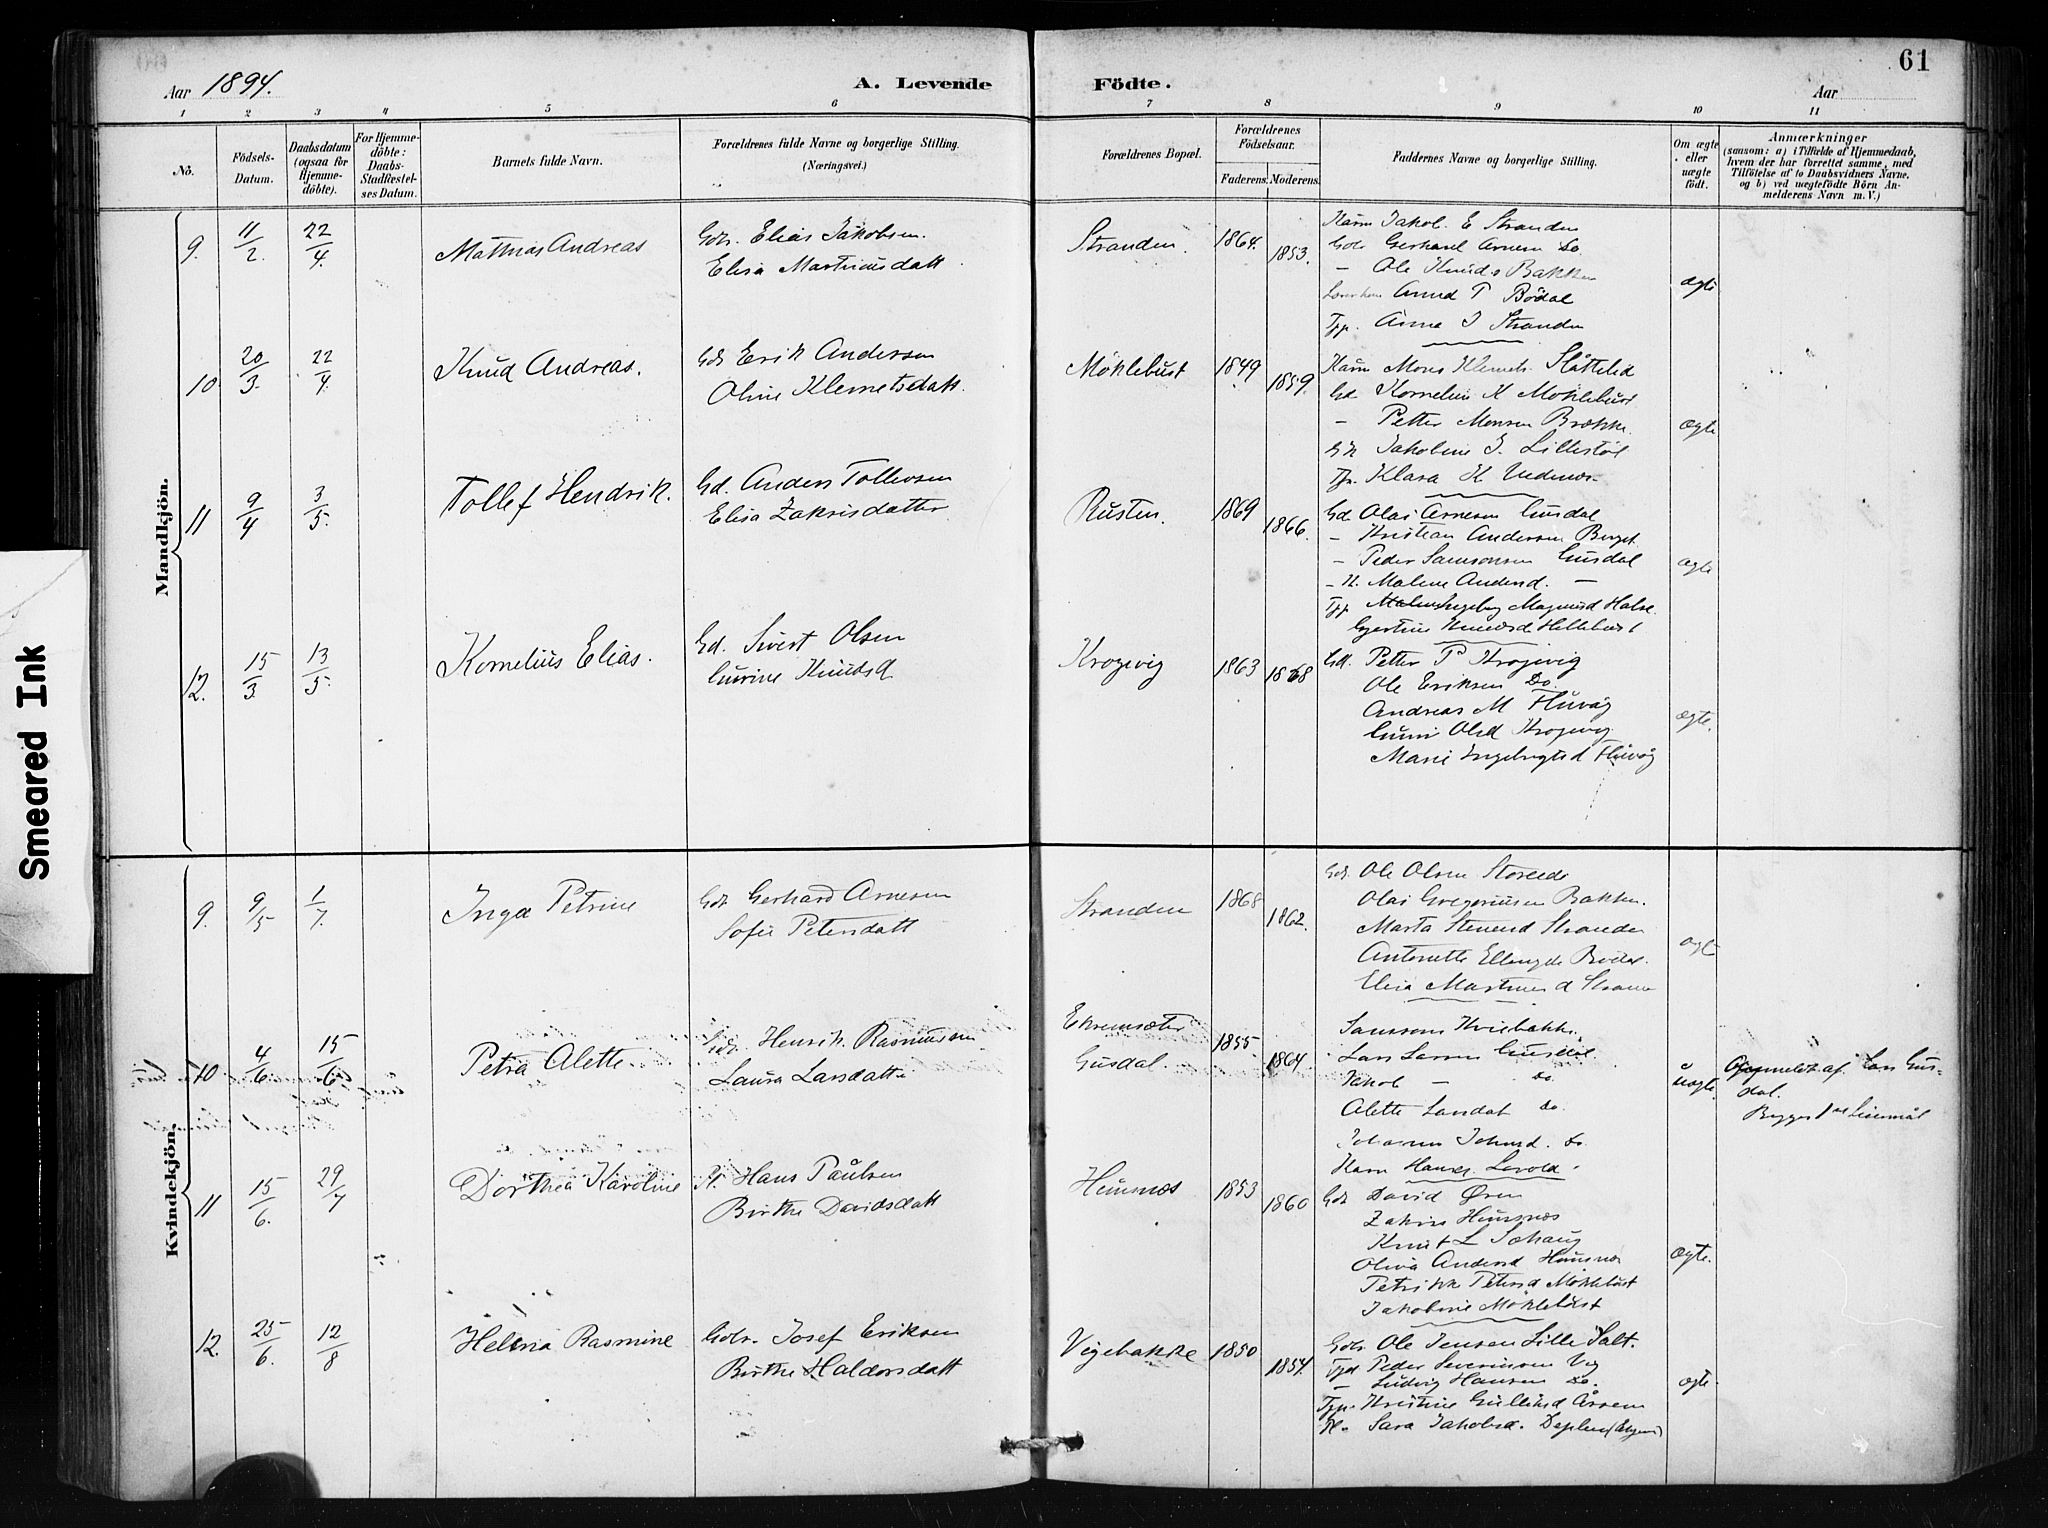 61
Aar 1894.
A. Levende Födte.
Aar
1 2 3 4 5 6 7 8 9 10 11
No.
Födsels-Datum.
Daabsdatum (ogsaa for Hjemme-döbte).
For Hjemme-döbte: Daabs-Stadfæstel-ses Datum.
Barnets fulde Navn.
Forældrenes fulde Navne og borgerlige Stilling. (Næringsvei.)
Forældrenes Bopæl.
Forældrenes Födselsaar.
Faderens. Moderens.
Faddernes Navne og borgerlige Stilling.
Om ægte eller uægte födt.
Anmærkninger
(saasom: a) i Tilfælde af Hjemmedaab,
hvem der har forrettet samme, med
Tilföielse af to Daabsvidners Navne,
og b) ved uægtefödte Börn An-
melderens Navn m. V.)
Mandkjön.
9. 11/2. 22/4. Mathias Andreas
Gdr. Elias Jakobsen.
Elisa Martinusdatt
Stranden. 1864. 1853.
Kaarm Jakob E Stranden
Gdr Gerhard Arnesen Do
- Ole Knuds Bakken
Arund P Bödal
Tjp. Anna J Stranden
ægte
10 20/3. 22/4. Knud Andreas.
Gdr Erik Andersen
Oline Klemetsdatt.
Möklebust 1849 1859.
Kaarm Mons Klemets. Slåttelid
Gd. Kornelius K Möklebust
- Petter Monsen Brække.
Gk Jakobine J. Lillestöl
Tjp. Klara K
ægte
11 9/4 3/5. Tollef Hendrik.
Gd. Anders Tollevsen
Elisa Zakrisdatter
Rusten. 1869 1866.
Gd Olai Arnesen Gusdal
- Kristian Andersen Berget.
- Peder Samsonsen Gusdal
- K. Malene Andersd. -
Tjp. Ingeborg Magnusd Halse
Gjertine Hellebust
ægte
12. 15/3. 13/5. Kornelius Elias.
Gd. Sivert Olsen
Gurine Knudsd
Krogvig 1863 1868
Gd. Petter P Krogvig
Ole Eriksen Do
Andreas M Flüvåg
Guri Olsd Krogvig
Marie Engebrigtsd Flüvåg
ægte.
Kvindekjön.
9. 9/5 1/7. Inga Petrine
Gdr Gerhard Arnesen
Sofie Petersdatt
Stranden 1868 1862.
Gdr. Ole Olsen
Olai Gregoriusen Bakken.
Marta Stranden
Antonette
Elisa Martinusd
ægte
10 4/6. 15/6 Petra Alette
Gdr. Henrik Rasmussen
Laura Larsdatte
Ekremsæter
Gusdal. 1855. 1864
Samsons Kviebakke.
Lars Larsen Gusdal.
Jakob - Do.
Alette Larsdat Do.
Johanne Do.
uægte
Opmeldt af Lars Gus-
dal.
Begges 1ste Leiermål
11 15/6. 29/7 Dorthea Karoline
Pl. Hans Paulsen
Birthe Davidsdatt
Heimnæs 1853 1860
Karn Hanse. Løvold.
Gdr David Øren
Zakris Heimnæs
Knut L
Oliva Andersd
Petrikke Petersd Möklebust
Jakobine Möklebust
ægte.
12. 25/6. 12/8 Helena Rasmine
Gdr. Josef Eriksen
Birthe Haldorsdatt
Vigebakke 1850 1854.
Gdr Ole Jensen Lille Salt.
Tjd Peder Severinsen Vig
- Ludvig Hansen Do.
Tjp. Kristine Gulliksd Åsen
Pl. Sara Jakobsd.
ægte.
Smeared Ink